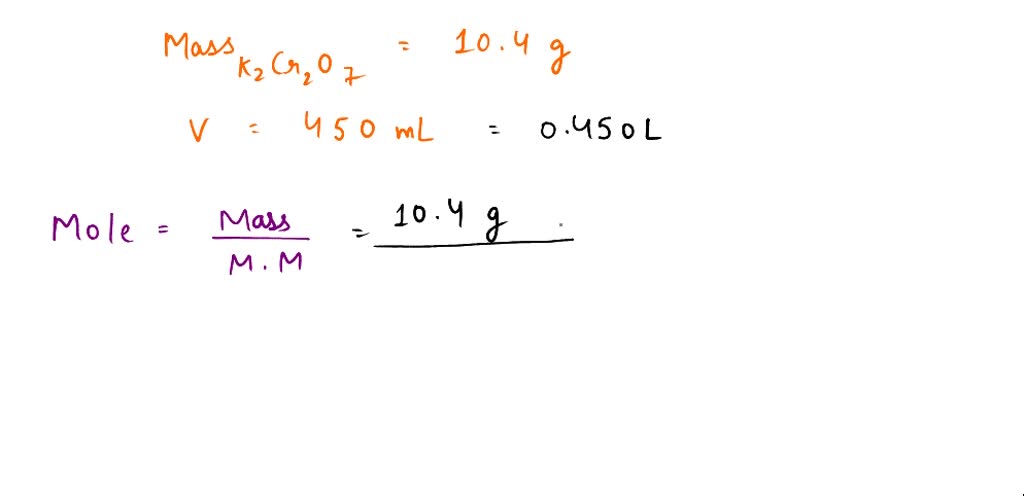 Mass K₂Cr₂O₇ = 10.4 g
V = 450 mL = 0.450 L
Mole = Mass / M.M = 10.4 g